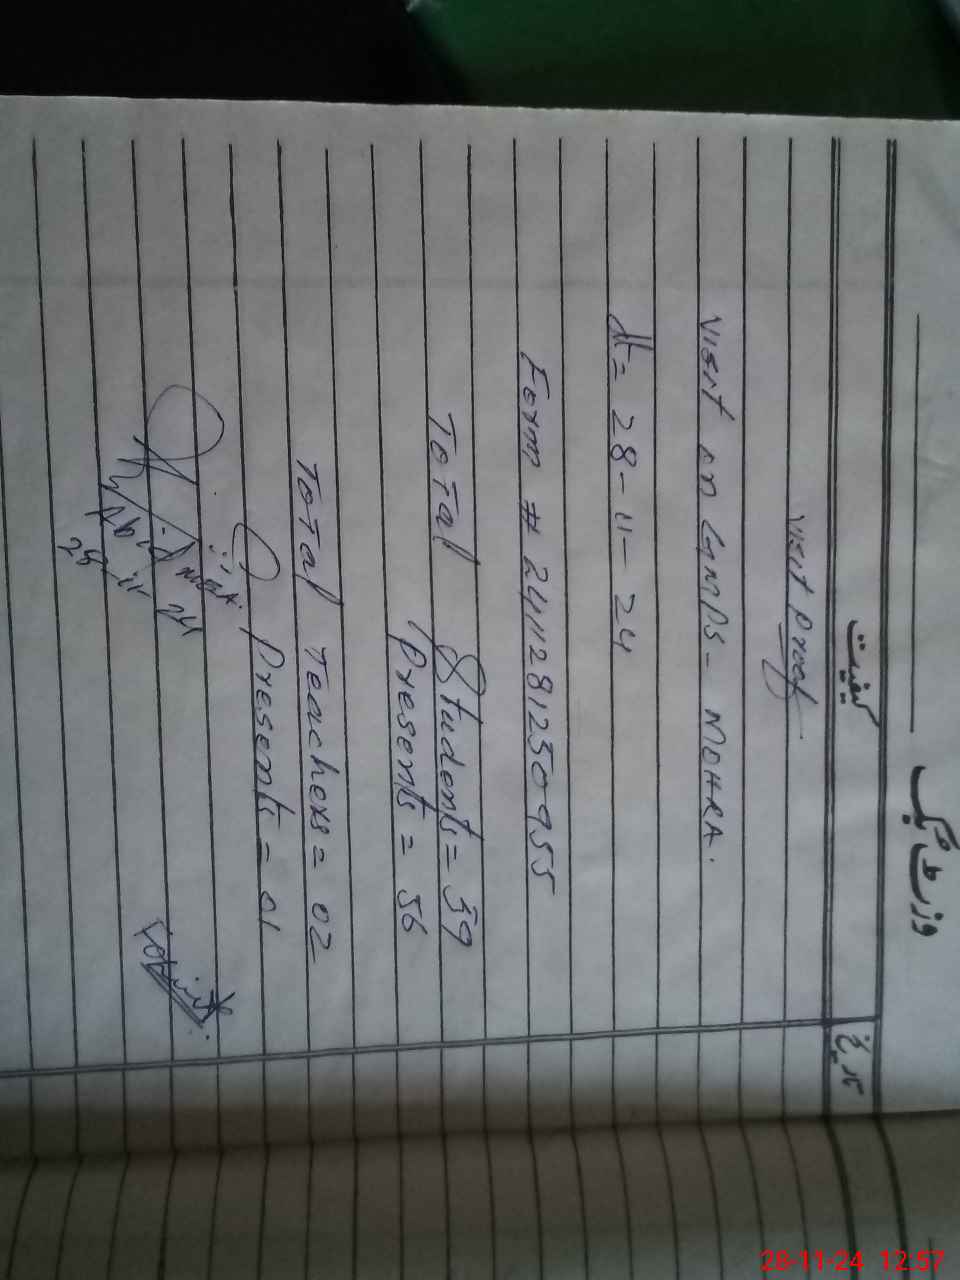 وزٹ بک
کیفیت
تاریخ
Visit proof
Visit on GMPS- MOHRA.
dt= 28-11-24
Form # 2411281250955
Total Students = 39
Presents = 36
Total Teachers = 02
Presents = 01
Abid
28 11 24
28-11-24 12:57